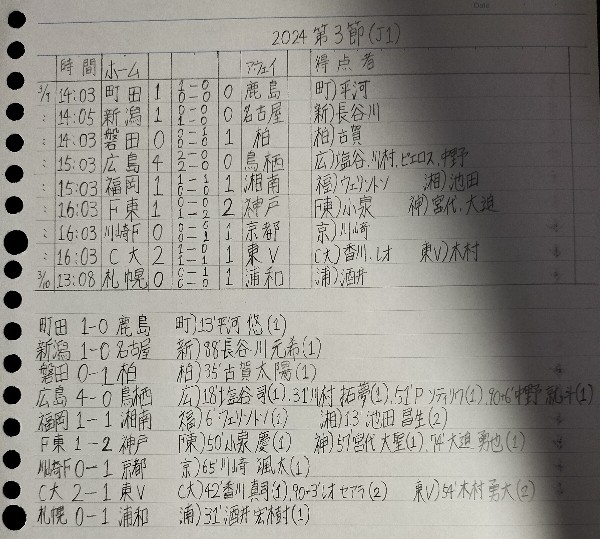 2024 第3節(J1)
時間 ホーム アウェイ 得点者
3/9 14:03 町田 1 1-0 0-0 0 鹿島 町)平河
: 14:05 新潟 1 0 名古屋 新)長谷川
: 14:03 磐田 0 1 柏 柏)古賀
: 15:03 広島 4 2-0 2-0 0 鳥栖 広)塩谷.川村.ピエロス.中野
: 15:03 福岡 1 1-1 0-0 1 湘南 福)ウェリントン 湘)池田
: 16:03 F東 1 0-0 1-2 2 神戸 F東)小泉 神)宮代.大迫
: 16:03 川崎F 0 0-0 0-1 1 京都 京)川崎
: 16:03 C大 2 1-0 1-1 1 東V C大)香川.レオ 東V)木村
3/10 13:08 札幌 0 0-1 0-0 1 浦和 浦)酒井
町田 1-0 鹿島 町)13'平河 悠(1)
新潟 1-0 名古屋 新)88'長谷川元希(1)
磐田 0-1 柏 柏)35'古賀太陽(1)
広島 4-0 鳥栖 広)18'塩谷 司(1).31'川村 拓夢(1).51'P (1).90+6'中野 就斗(1)
福岡 1-1 湘南 福)6'ウェリントン(1) 湘)13'池田昌生(2)
F東 1-2 神戸 F東)50'小泉 慶(1) 神)57'宮代大聖(1).74'大迫勇也(1)
川崎F 0-1 京都 京)65'川崎 颯太(1)
C大 2-1 東V C大)42'香川真司(1).90+3'レオ セアラ(2) 東V)54'木村勇大(2)
札幌 0-1 浦和 浦)31'酒井宏樹(1)